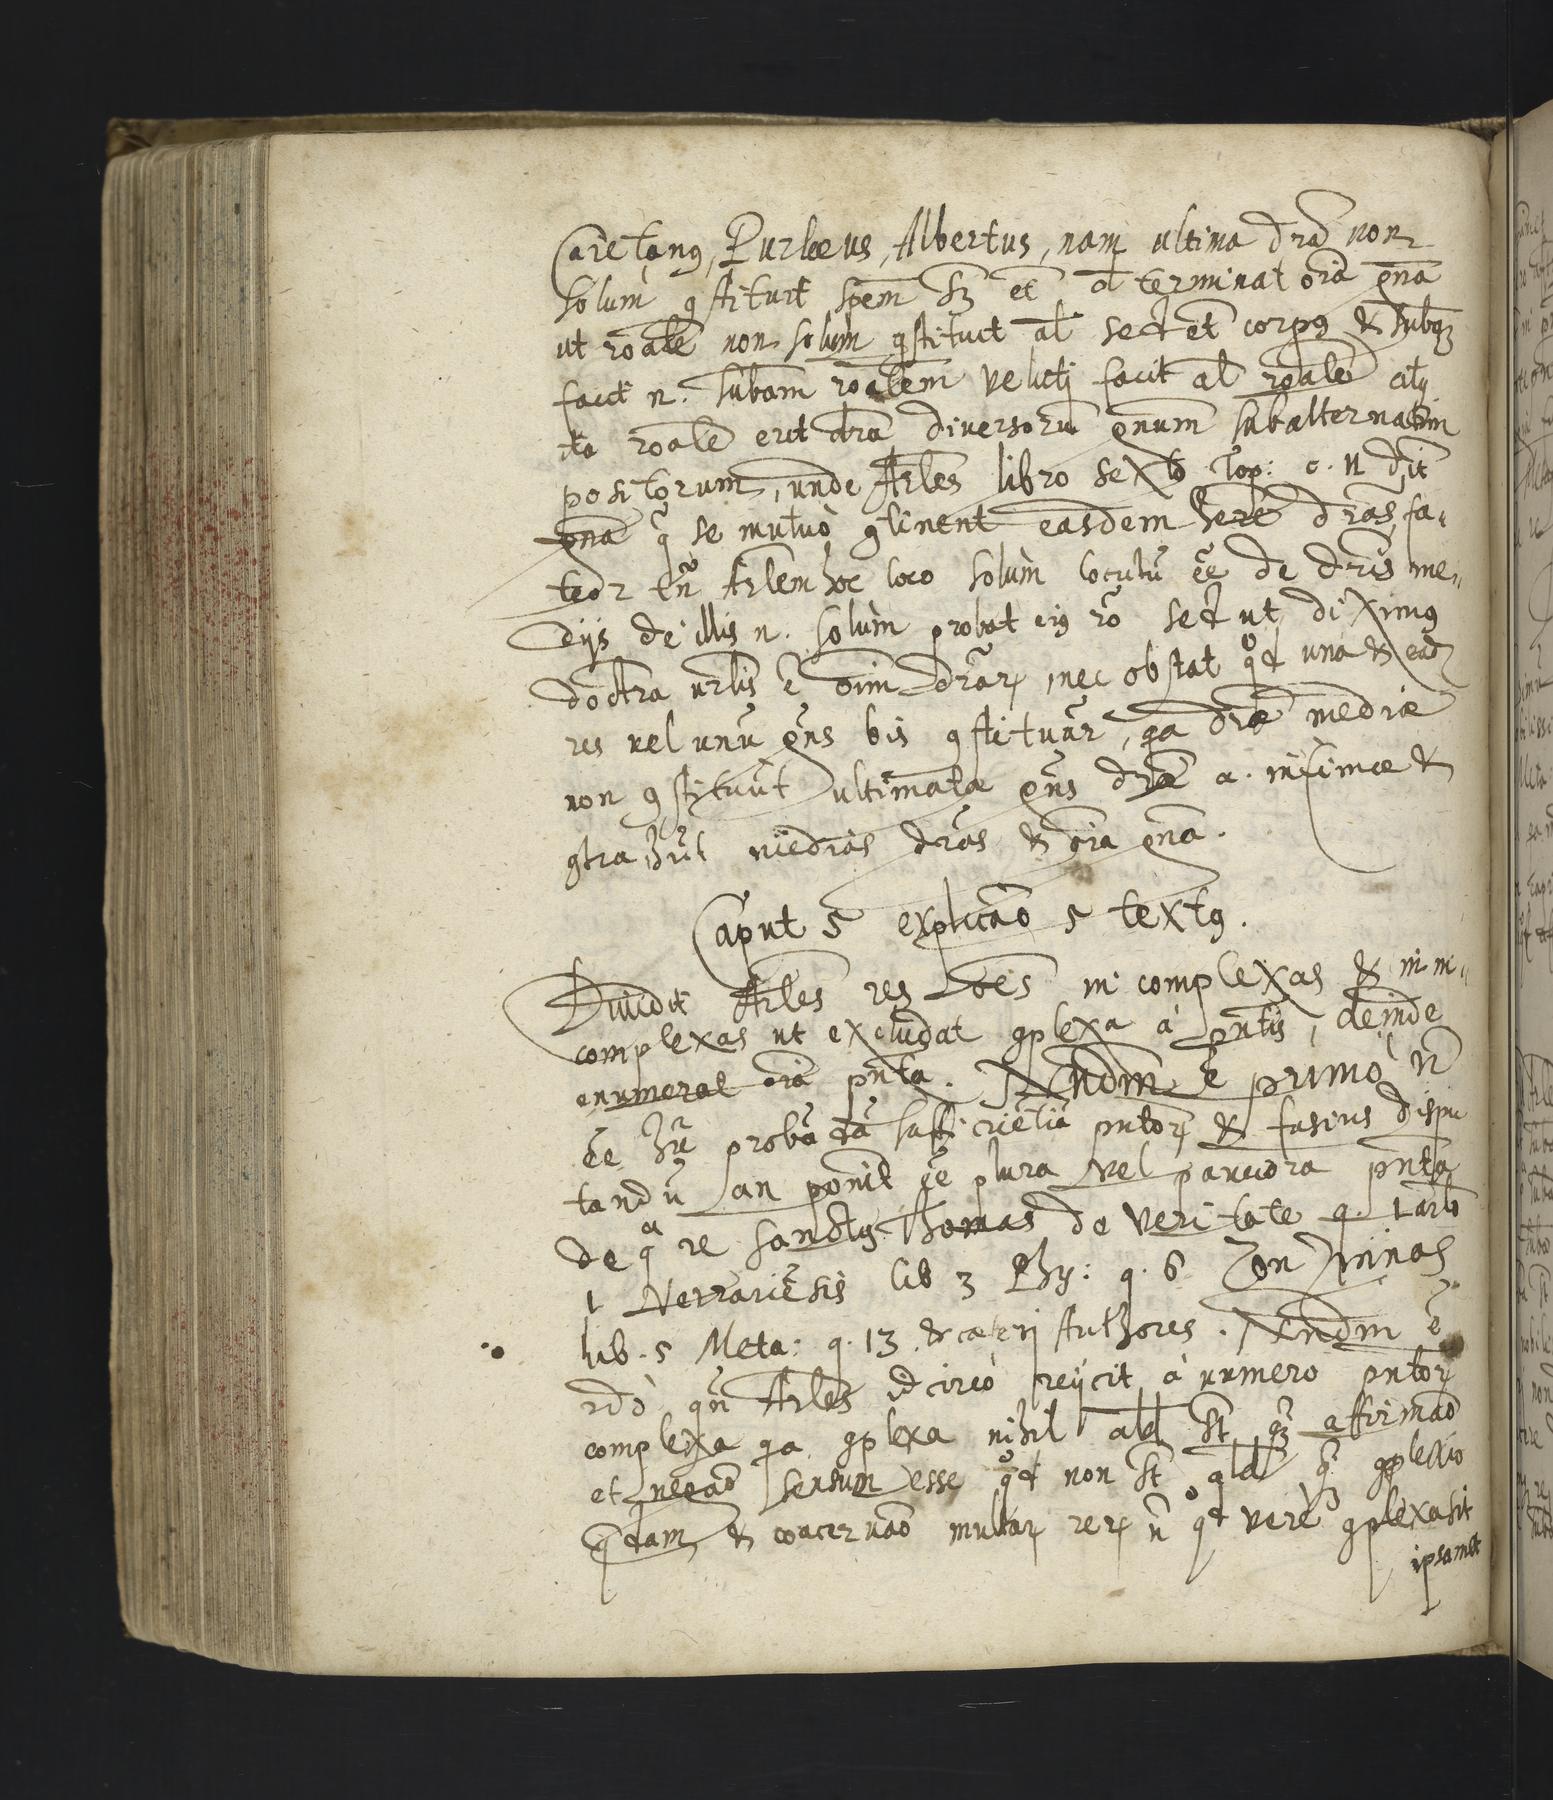 Caietang, Burleus, Albertus, nam ultima dr̃a non
solum gstituit spem sz et terminat oĩa gn̄a
ut roale non solum gstituit al sed et corpg & subq̃
facit n. subam roalem veluti facit al roale
ita roale erit dr̃a diversorũ gnum subalternatim
positorum, unde Arles libro sexto Top: c. n dit
gn̄a q̃ se mutuò gtinent easdem here dr̃as fa-
teor tñ Arlem hoc loco solùm locutũ ẽe de dr̃is me-
dijs de illis n. solùm probat eig ro sed ut diximg
doctra urlis ẽ oĩm dr̃ar, nec obstat qd una & ead
res vel unũ gñs bis gstituat, qa dr̃æ mediæ
non gstituũt ultimatæ gñs dr̃æ a. infimæ &
gtrahũt medias dr̃as & oĩa gña.
Caput 5 explicao 5 textg.
Dividit Arles res oes in complexas & in in-
complexas ut excludat gplexa à pñtis, deinde
enumerat oĩa pñta. Nndm ẽ primò ñ
ẽe hũ probãdã sufficiẽtiã pñtor & fusius dispu
tandũ an ponit ẽe plura vel pauciora pñta
de qa re sanctg Thomas de veritate q. 1 arlo
1 Verrariẽsis lib 3 Phy: q. 6 Zon Zinnas
lib. 5 Meta: q. 13 & cæteri Authores. Nndm ẽ
2dò qñ Arles idcircò reijcit à numero pñtor
complexa qa gplexa nihil ald st q̃ affirmao
et negao sensum esse qd non st ald q̃ gplexio
q̃dam & coacervao multar rer ñ qd verè gplexa sit
ipsamet